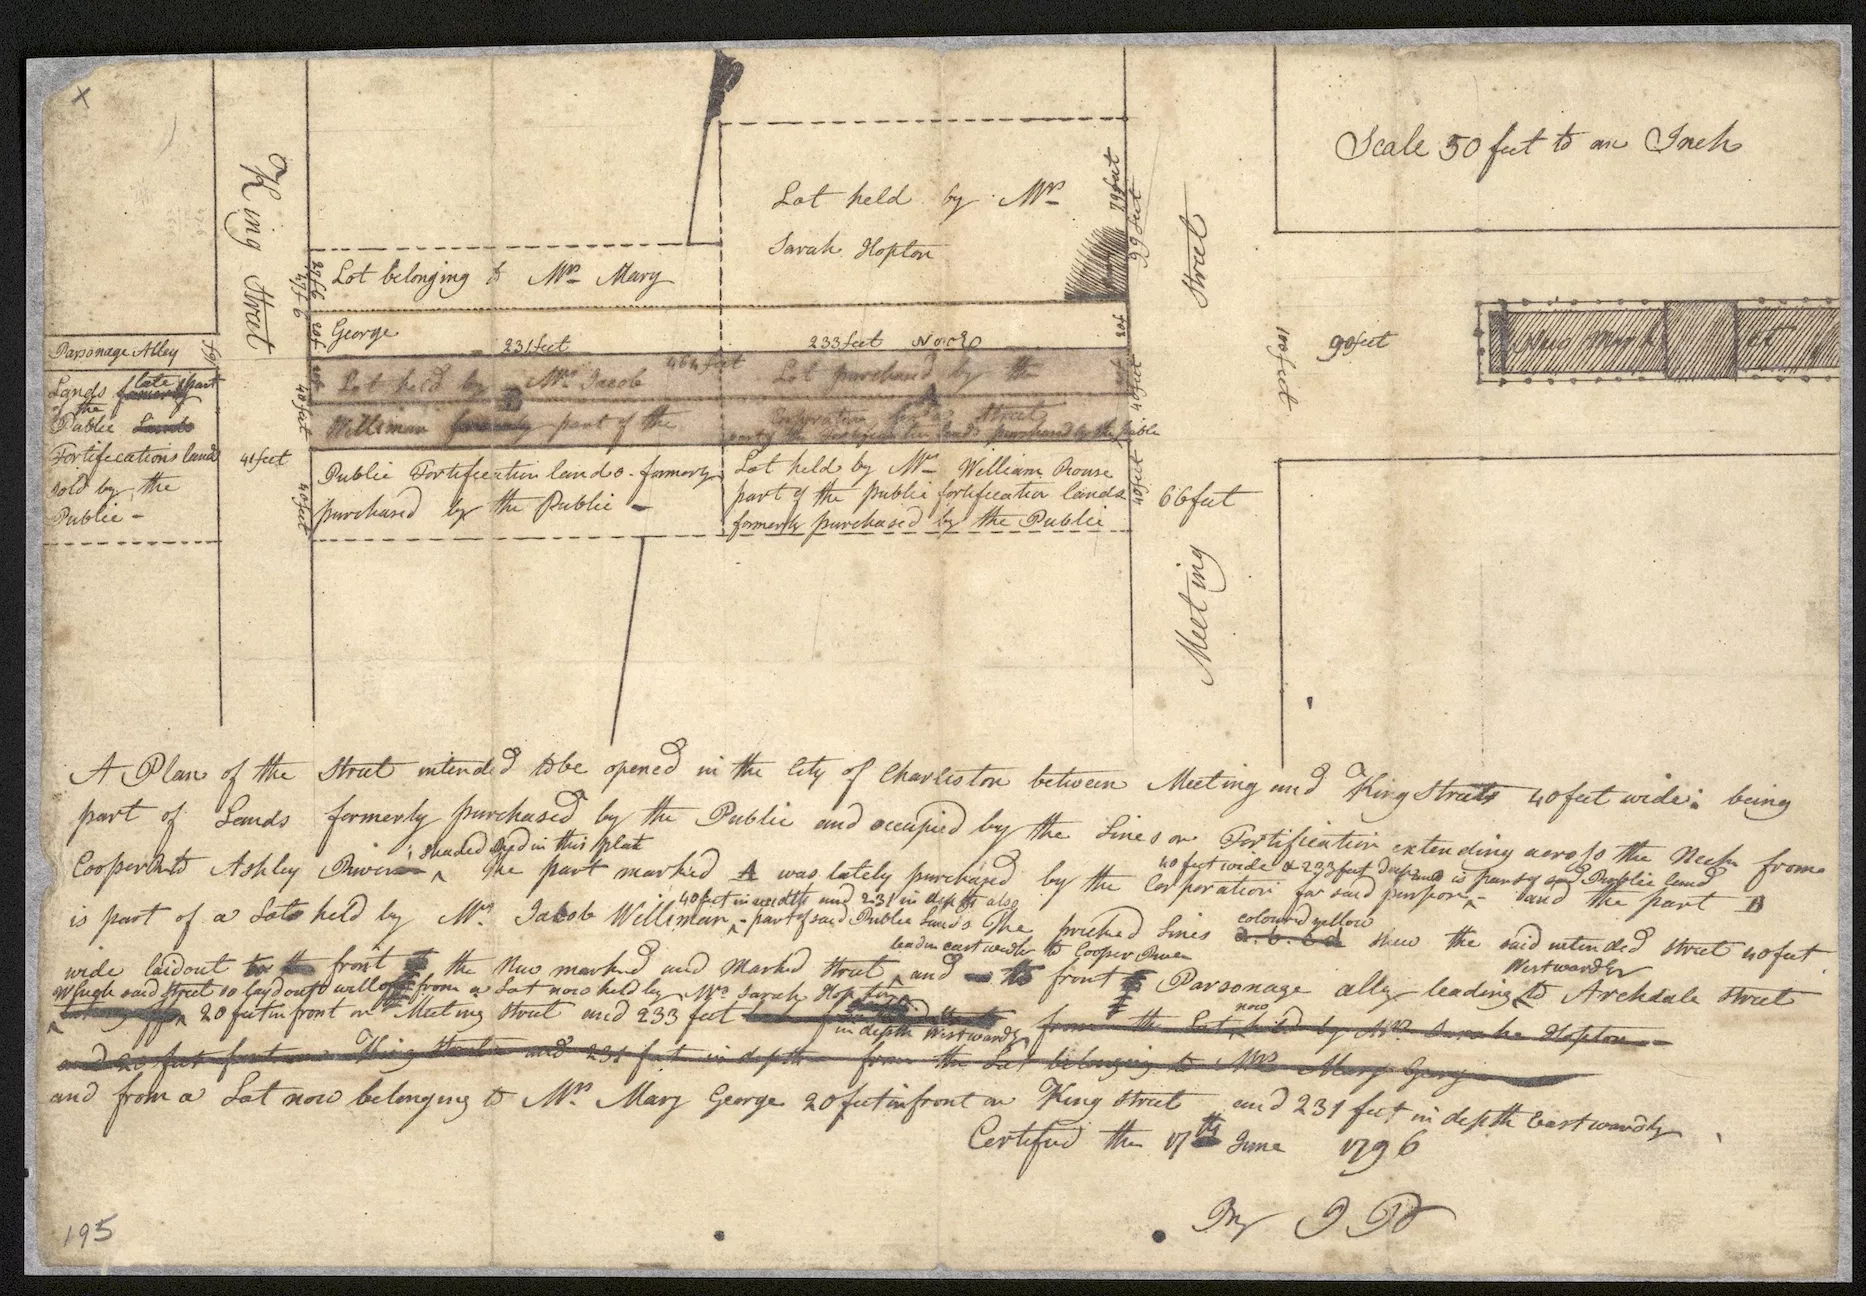 X
Scale 50 feet to an Inch
King Street
Meeting Street
Lot held by Mrs
Sarah Hopton
29 feet
29 feet
Lot belonging to Mrs Mary
George
231 feet
233 feet No 20
20f
20f
464 feet
Parsonage Alley
Lands late part
of the
Public
Fortifications land
sold by the
Public -
41 feet
40 feet
40 feet
Lot held by Mr Jacob
B
Williman part of the
Lot purchased by the
A
Corporation for a Street
part of the fortification lands purchased by the Public
40 feet
40 feet
Public Fortification lands formerly
purchased by the Public -
Lot held by Mr William Rouse
part of the public fortification lands
formerly purchased by the Public
66 feet
100 feet
90 feet
New Market
A Plan of the Street intended to be opened in the City of Charleston between Meeting and King Streets 40 feet wide: being
part of Lands formerly purchased by the Public and occupied by the Lines or Fortification extending across the Neck from
shaded red in this plat
Cooper to Ashley River The part marked A was lately purchased by the Corporation for said purpose - and the part B
40 feet wide & 233 feet deep and is part of said Public land
is part of a Lot held by Mr Jacob Williman - part of said Public Lands The pricked Lines coloured yellow shew the said intended street 40 feet
40 feet in width and 231 in depth also
wide laid out to front the New market and Market street and to front Parsonage alley leading to Archdale street
leading eastwardly to Cooper River
Westwardly
Which said Street so laid out will from a Lot now held by Mrs Sarah Hopton
20 feet in front on Meeting street and 233 feet in depth Westwardly from the Lot now held by Mrs Sarah Hopton
and 20 feet front on King Street and 231 feet in depth from the Lot belonging to Mrs Mary George
and from a Lot now belonging to Mrs Mary George 20 feet in front on King street and 231 feet in depth Eastwardly
Certified the 17th June 1796
By J P
195